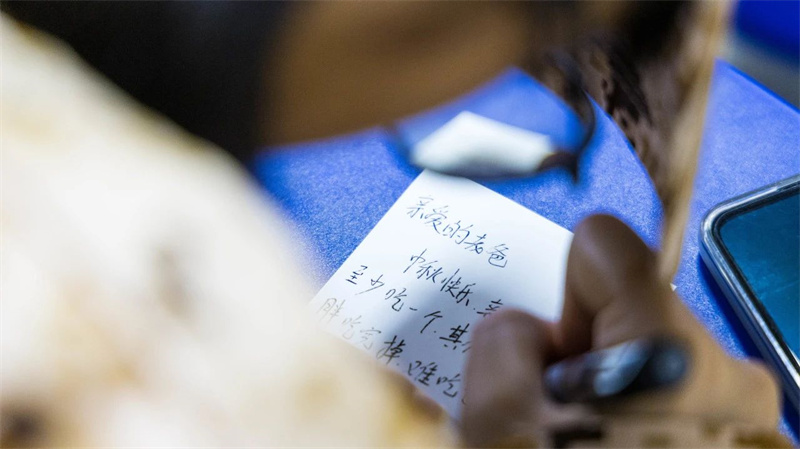 亲爱的老爸
中秋快乐.
至少吃一个.其
胖吃完掉.难吃